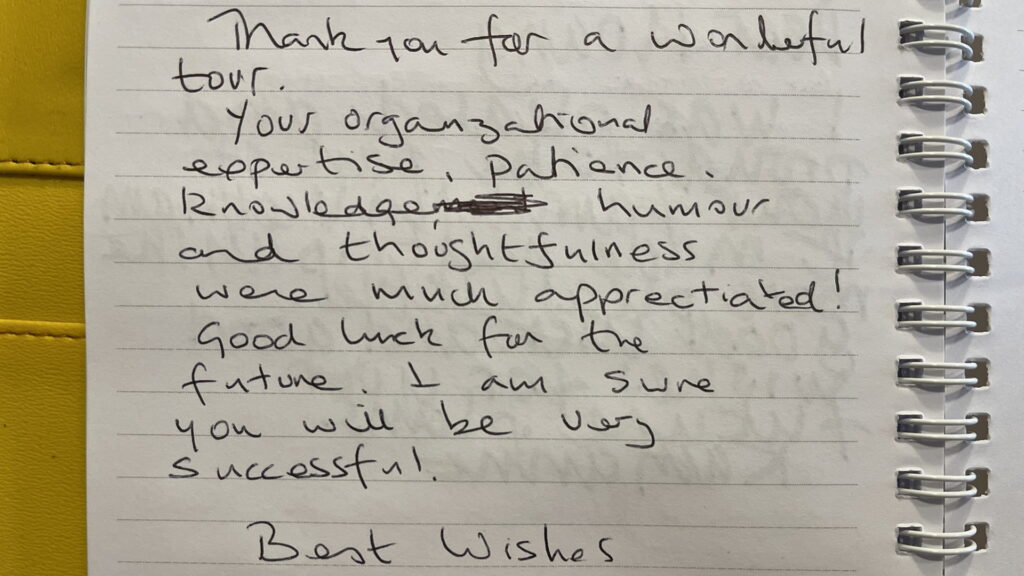 Thank you for a wonderful
tour.
Your organizational
expertise, patience.
knowledge, humour
and thoughtfulness
were much apprectiated!
Good luck for the
future. I am sure
you will be very
successful.
Best Wishes